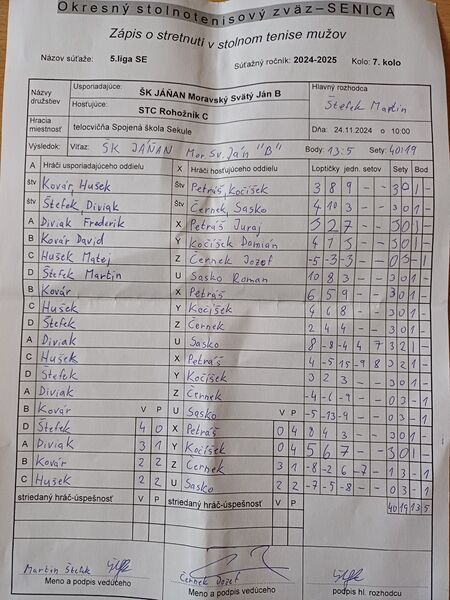 Okresný stolnotenisový zväz–SENICA
Zápis o stretnutí v stolnom tenise mužov
Názov súťaže: 5.liga SE Súťažný ročník: 2024-2025 Kolo: 7. kolo
Názvy družstiev Usporiadajúce: ŠK JÁŇAN Moravský Svätý Ján B Hlavný rozhodca
Hosťujúce: STC Rohožník C Štefek Martin
Hracia miestnosť telocvičňa Spojená škola Sekule Dňa: 24.11.2024 o 10:00
Výsledok: Víťaz: ŠK JÁŇAN Mor. Sv. Ján "B" Body: 13:5 Sety: 40:19
A Hráči usporiadajúceho oddielu X Hráči hosťujúceho oddielu Loptičky jedn. setov Sety Bod
štv Kovár, Hušek štv Petráš, Kočíšek 3 8 9 - - 3 0 1 -
štv Štefek, Diviak štv Černek, Sasko 4 10 3 - - 3 0 1 -
A Diviak Frederik X Petráš Juraj 5 2 7 - - 3 0 1 -
B Kovár David Y Kočíšek Domián 4 7 5 - - 3 0 1 -
C Hušek Matej Z Černek Jozef -5 -3 -3 - - 0 3 - 1
D Štefek Martin U Sasko Roman 10 8 3 - - 3 0 1 -
B Kovár X Petráš 6 5 9 - - 3 0 1 -
C Hušek Y Kočíšek 4 6 8 - - 3 0 1 -
D Štefek Z Černek 2 4 4 - - 3 0 1 -
A Diviak U Sasko 8 -8 -4 4 7 3 2 1 -
C Hušek X Petráš 4 -5 15 -9 8 3 2 1 -
D Štefek Y Kočíšek 3 2 3 - - 3 0 1 -
A Diviak Z Černek -4 -6 -9 - - 0 3 - 1
B Kovár V P U Sasko V P -5 -13 -9 - - 0 3 - 1
D Štefek 4 0 X Petráš 0 4 8 4 3 - - 3 0 1 -
A Diviak 3 1 Y Kočíšek 0 4 5 6 7 - - 3 0 1 -
B Kovár 2 2 Z Černek 3 1 -8 -2 6 -7 - 1 3 - 1
C Hušek 2 2 U Sasko 2 2 -7 -5 -8 - - 0 3 - 1
striedaný hráč-úspešnosť V P striedaný hráč-úspešnosť V P 40 19 13 5
Martin Štefek Černek Jozef
Meno a podpis vedúceho Meno a podpis vedúceho podpis hl. rozhodcu